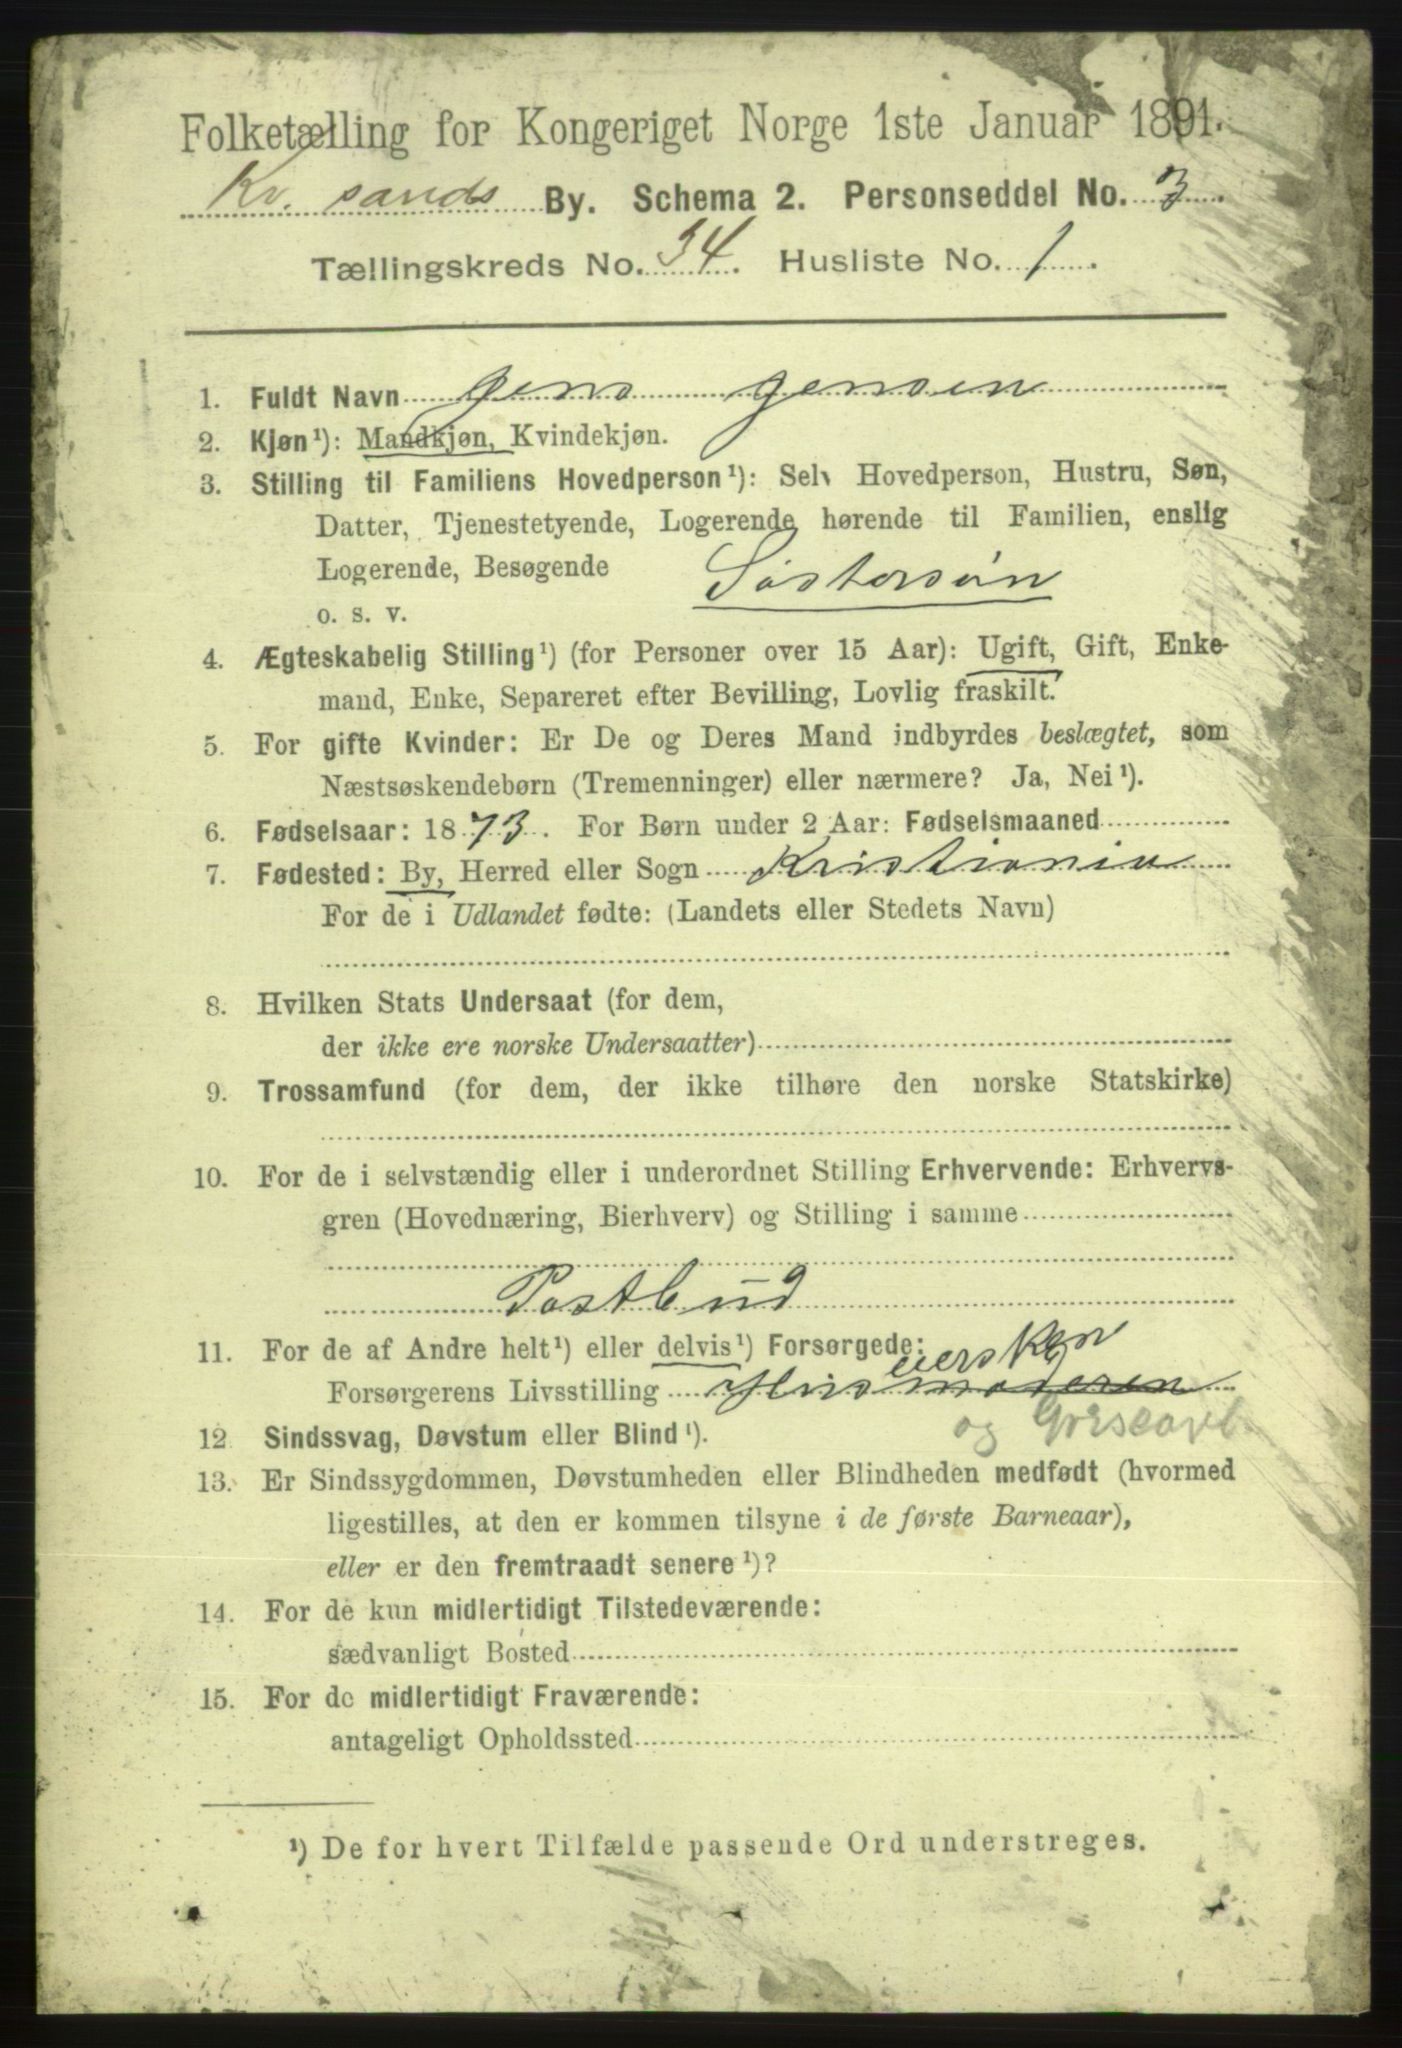 Folketælling for Kongeriget Norge 1ste Januar 1891.
Kr. sands By. Schema 2. Personseddel No. 3
Tællingskreds No. 34. Husliste No. 1.
1. Fuldt Navn Jens Jensen
2. Kjøn¹): Mandkjøn, Kvindekjøn.
3. Stilling til Familiens Hovedperson¹): Selv Hovedperson, Hustru, Søn,
Datter, Tjenestetyende, Logerende hørende til Familien, enslig
Logerende, Besøgende Søstersøn
o. s. v.
4. Ægteskabelig Stilling¹) (for Personer over 15 Aar): Ugift, Gift, Enke-
mand, Enke, Separeret efter Bevilling, Lovlig fraskilt.
5. For gifte Kvinder: Er De og Deres Mand indbyrdes beslægtet, som
Næstsøskendebørn (Tremenninger) eller nærmere? Ja, Nei¹).
6. Fødselsaar: 1873. For Børn under 2 Aar: Fødselsmaaned
7. Fødested: By, Herred eller Sogn Kristiania
For de i Udlandet fødte: (Landets eller Stedets Navn)
8. Hvilken Stats Undersaat (for dem,
der ikke ere norske Undersaatter)
9. Trossamfund (for dem, der ikke tilhøre den norske Statskirke)
10. For de i selvstændig eller i underordnet Stilling Erhvervende: Erhvervs-
gren (Hovednæring, Bierhverv) og Stilling i samme
Postbud
11. For de af Andre helt¹) eller delvis¹) Forsørgede:
eiersken
Forsørgerens Livsstilling Hus
og
12. Sindssvag, Døvstum eller Blind¹).
13. Er Sindssygdommen, Døvstumheden eller Blindheden medfødt (hvormed
ligestilles, at den er kommen tilsyne i de første Barneaar),
eller er den fremtraadt senere¹)?
14. For de kun midlertidigt Tilstedeværende:
sædvanligt Bosted
15. For de midlertidigt Fraværende:
antageligt Opholdssted
¹) De for hvert Tilfælde passende Ord understreges.